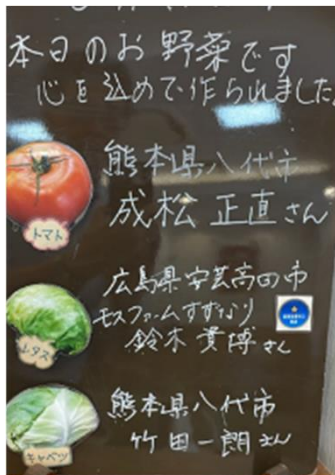 本日のお野菜です
心を込めて作られました
熊本県八代市
成松 正直さん
トマト
広島県安芸高田市
モスファームすずなり
鈴木 貴博さん
レタス
熊本県八代市
竹田一朗さん
キャベツ